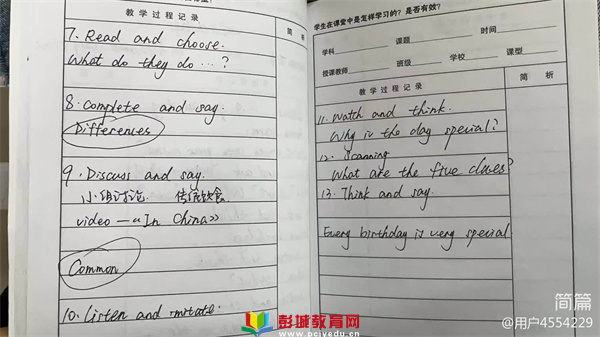 教学过程记录
简
7. Read and choose.
What do they do …?
8. Complete and say.
Differences
9. Discuss and say.
小组讨论 传统饮食
video —《In China》
Common
10. Listen and imitate.
学生在课堂中是怎样学习的？是否有效？
学科 课题 时间
授课教师 班级 学校 课型
教学过程记录
简 析
11. Watch and think.
Why is the day special?
12. Scanning
What are the five clues?
13. Think and say.
Every birthday is very special
简篇
@用户4554229
彭城教育网
www.pcjyedu.cn